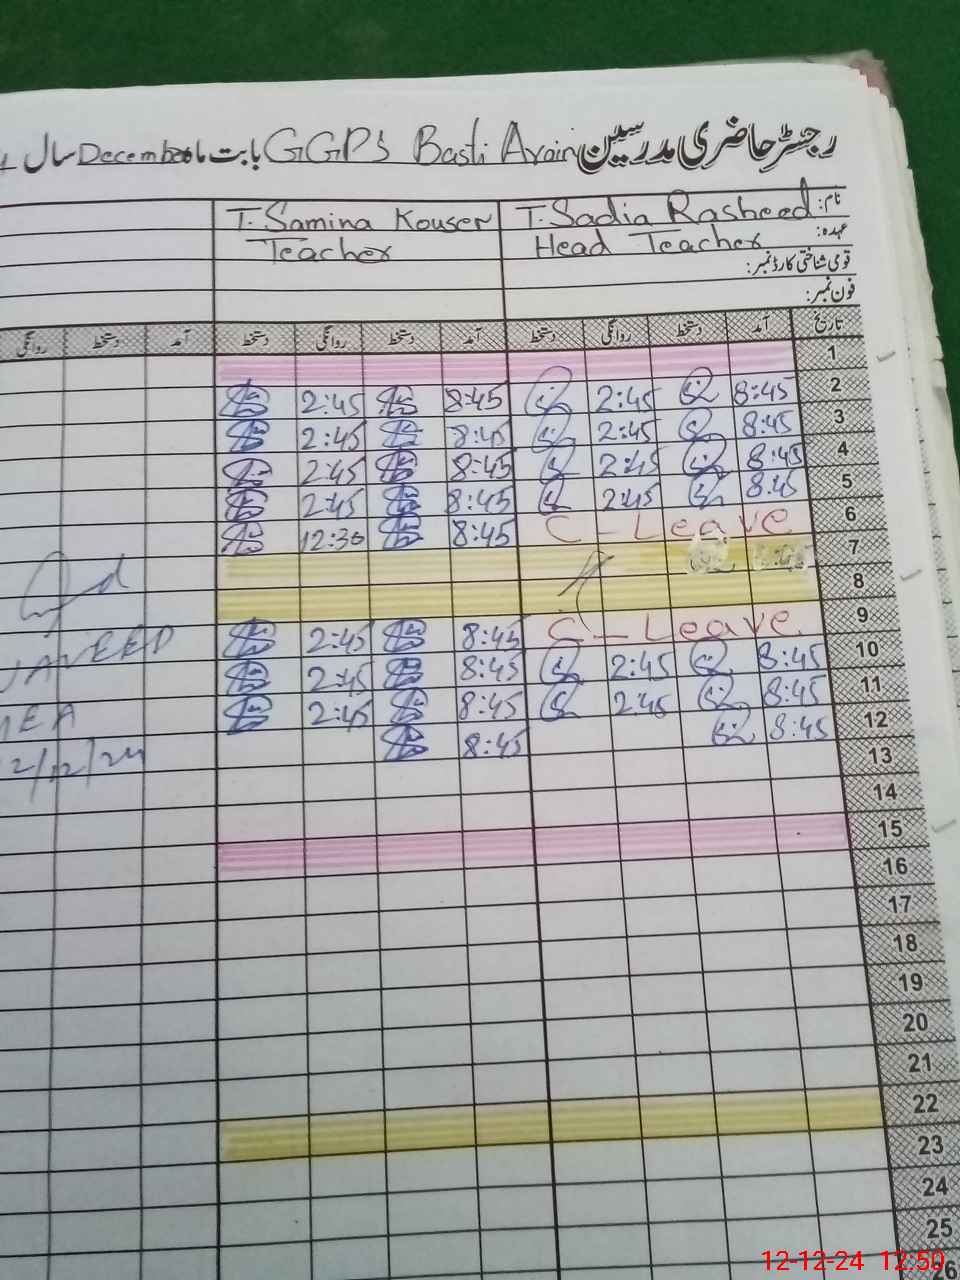 رجسٹر حاضری مدرسین GGPS Basti Arain بابت ماہ December سال
نام: T. Sadia Rasheed T. Samina Kouser
عہدہ: Head Teacher Teacher
قومی شناختی کارڈ نمبر:
فون نمبر:
تاریخ آمد دستخط روانگی دستخط آمد دستخط روانگی دستخط آمد دستخط روانگی
1
2 8:45 2:45 8:45 2:45
3 8:45 2:45 8:45 2:45
4 8:45 2:45 8:45 2:45
5 8:45 2:45 8:45 2:45
6 C-Leave 8:45 12:30
7
8
9 C-Leave 8:45 2:45
10 8:45 2:45 8:45 2:45
11 8:45 2:45 8:45 2:45
12 8:45 8:45
13
14
15
16
17
18
19
20
21
22
23
24
25
26
JAVEED
MEA
2/12/24
12-12-24 12:50